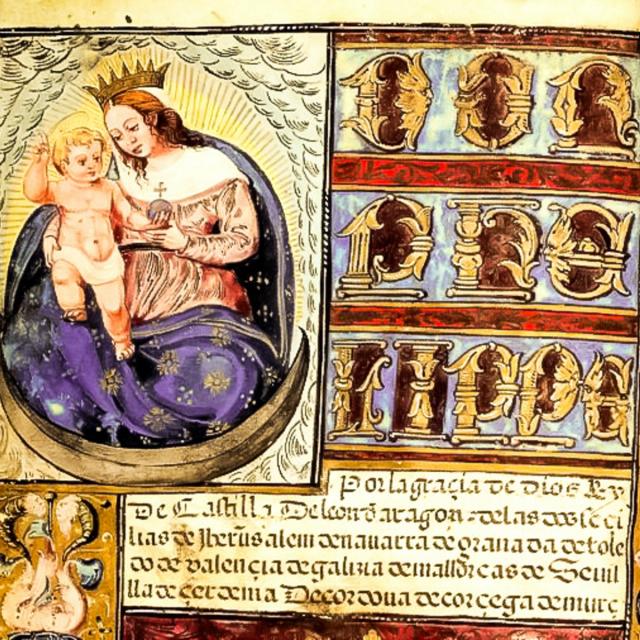 DON
PHE
LIPPE
Por la graçia de dios Rey
De Castilla De leon de aragon de las dos se ci
lias de Jherusalem de nauarra de granada de tole
do de valençia de galizia de mallorcas de Seuil
lla de çerdenia De cordoua de corçega de murç